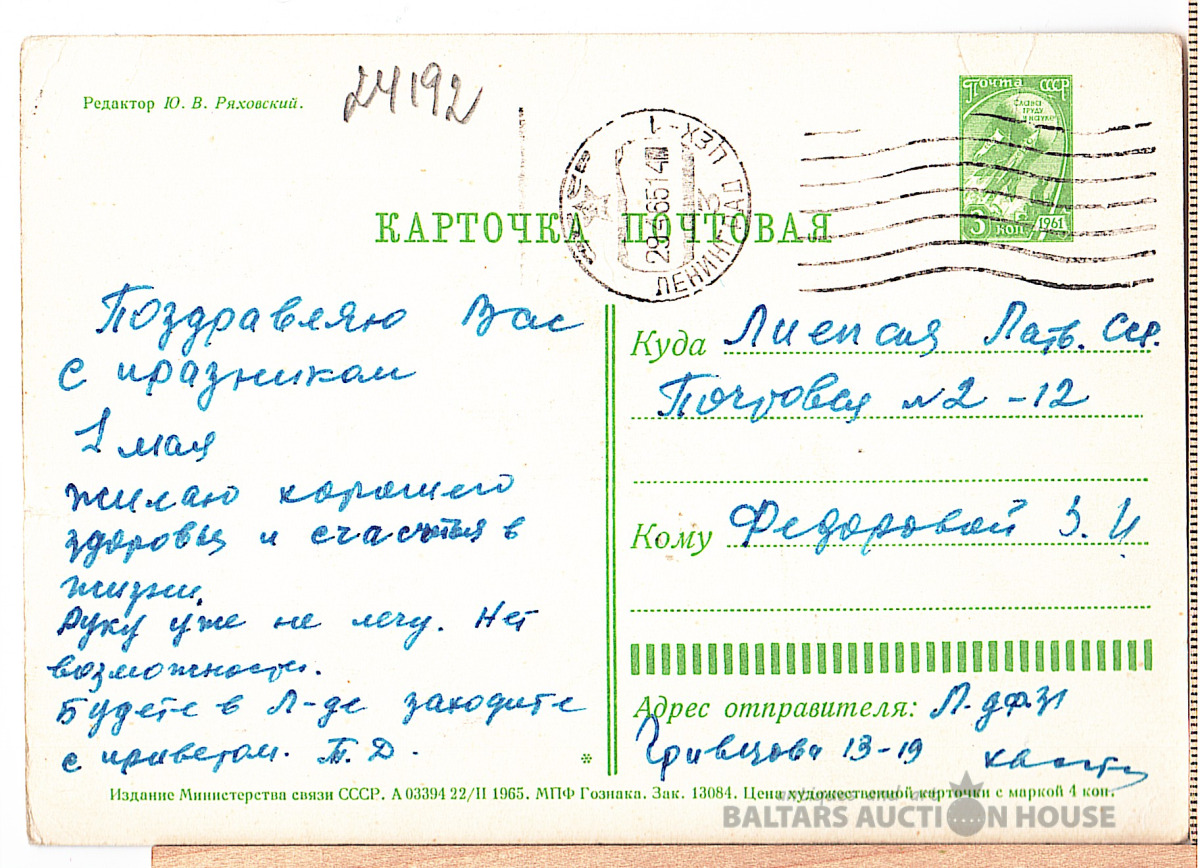 Редактор Ю. В. Ряховский.
24192
Почта СССР
Слава
труду
и науке
3 коп
1961
ЛЕНИНГРАД
ЦЕХ-1
29-4-65 14
КАРТОЧКА ПОЧТОВАЯ
Поздравляю Вас
с празником
1 мая
жилаю хорошего
здоровья и счастья в
жизни.
Руку уже не лечу. Нет
возможности.
Будете в Л-де заходите
с приветом. Т. Д.
Куда Лиепая Латв. ССР.
Почтовая №2-12
Кому Федоровой З. И
Адрес отправителя: Л-д
Гривцова 13-19
*
Издание Министерства связи СССР. А 03394 22/II 1965. МПФ Гознака. Зак. 13084. Цена художественной карточки с маркой 4 коп.
BALTARS AUCTION HOUSE